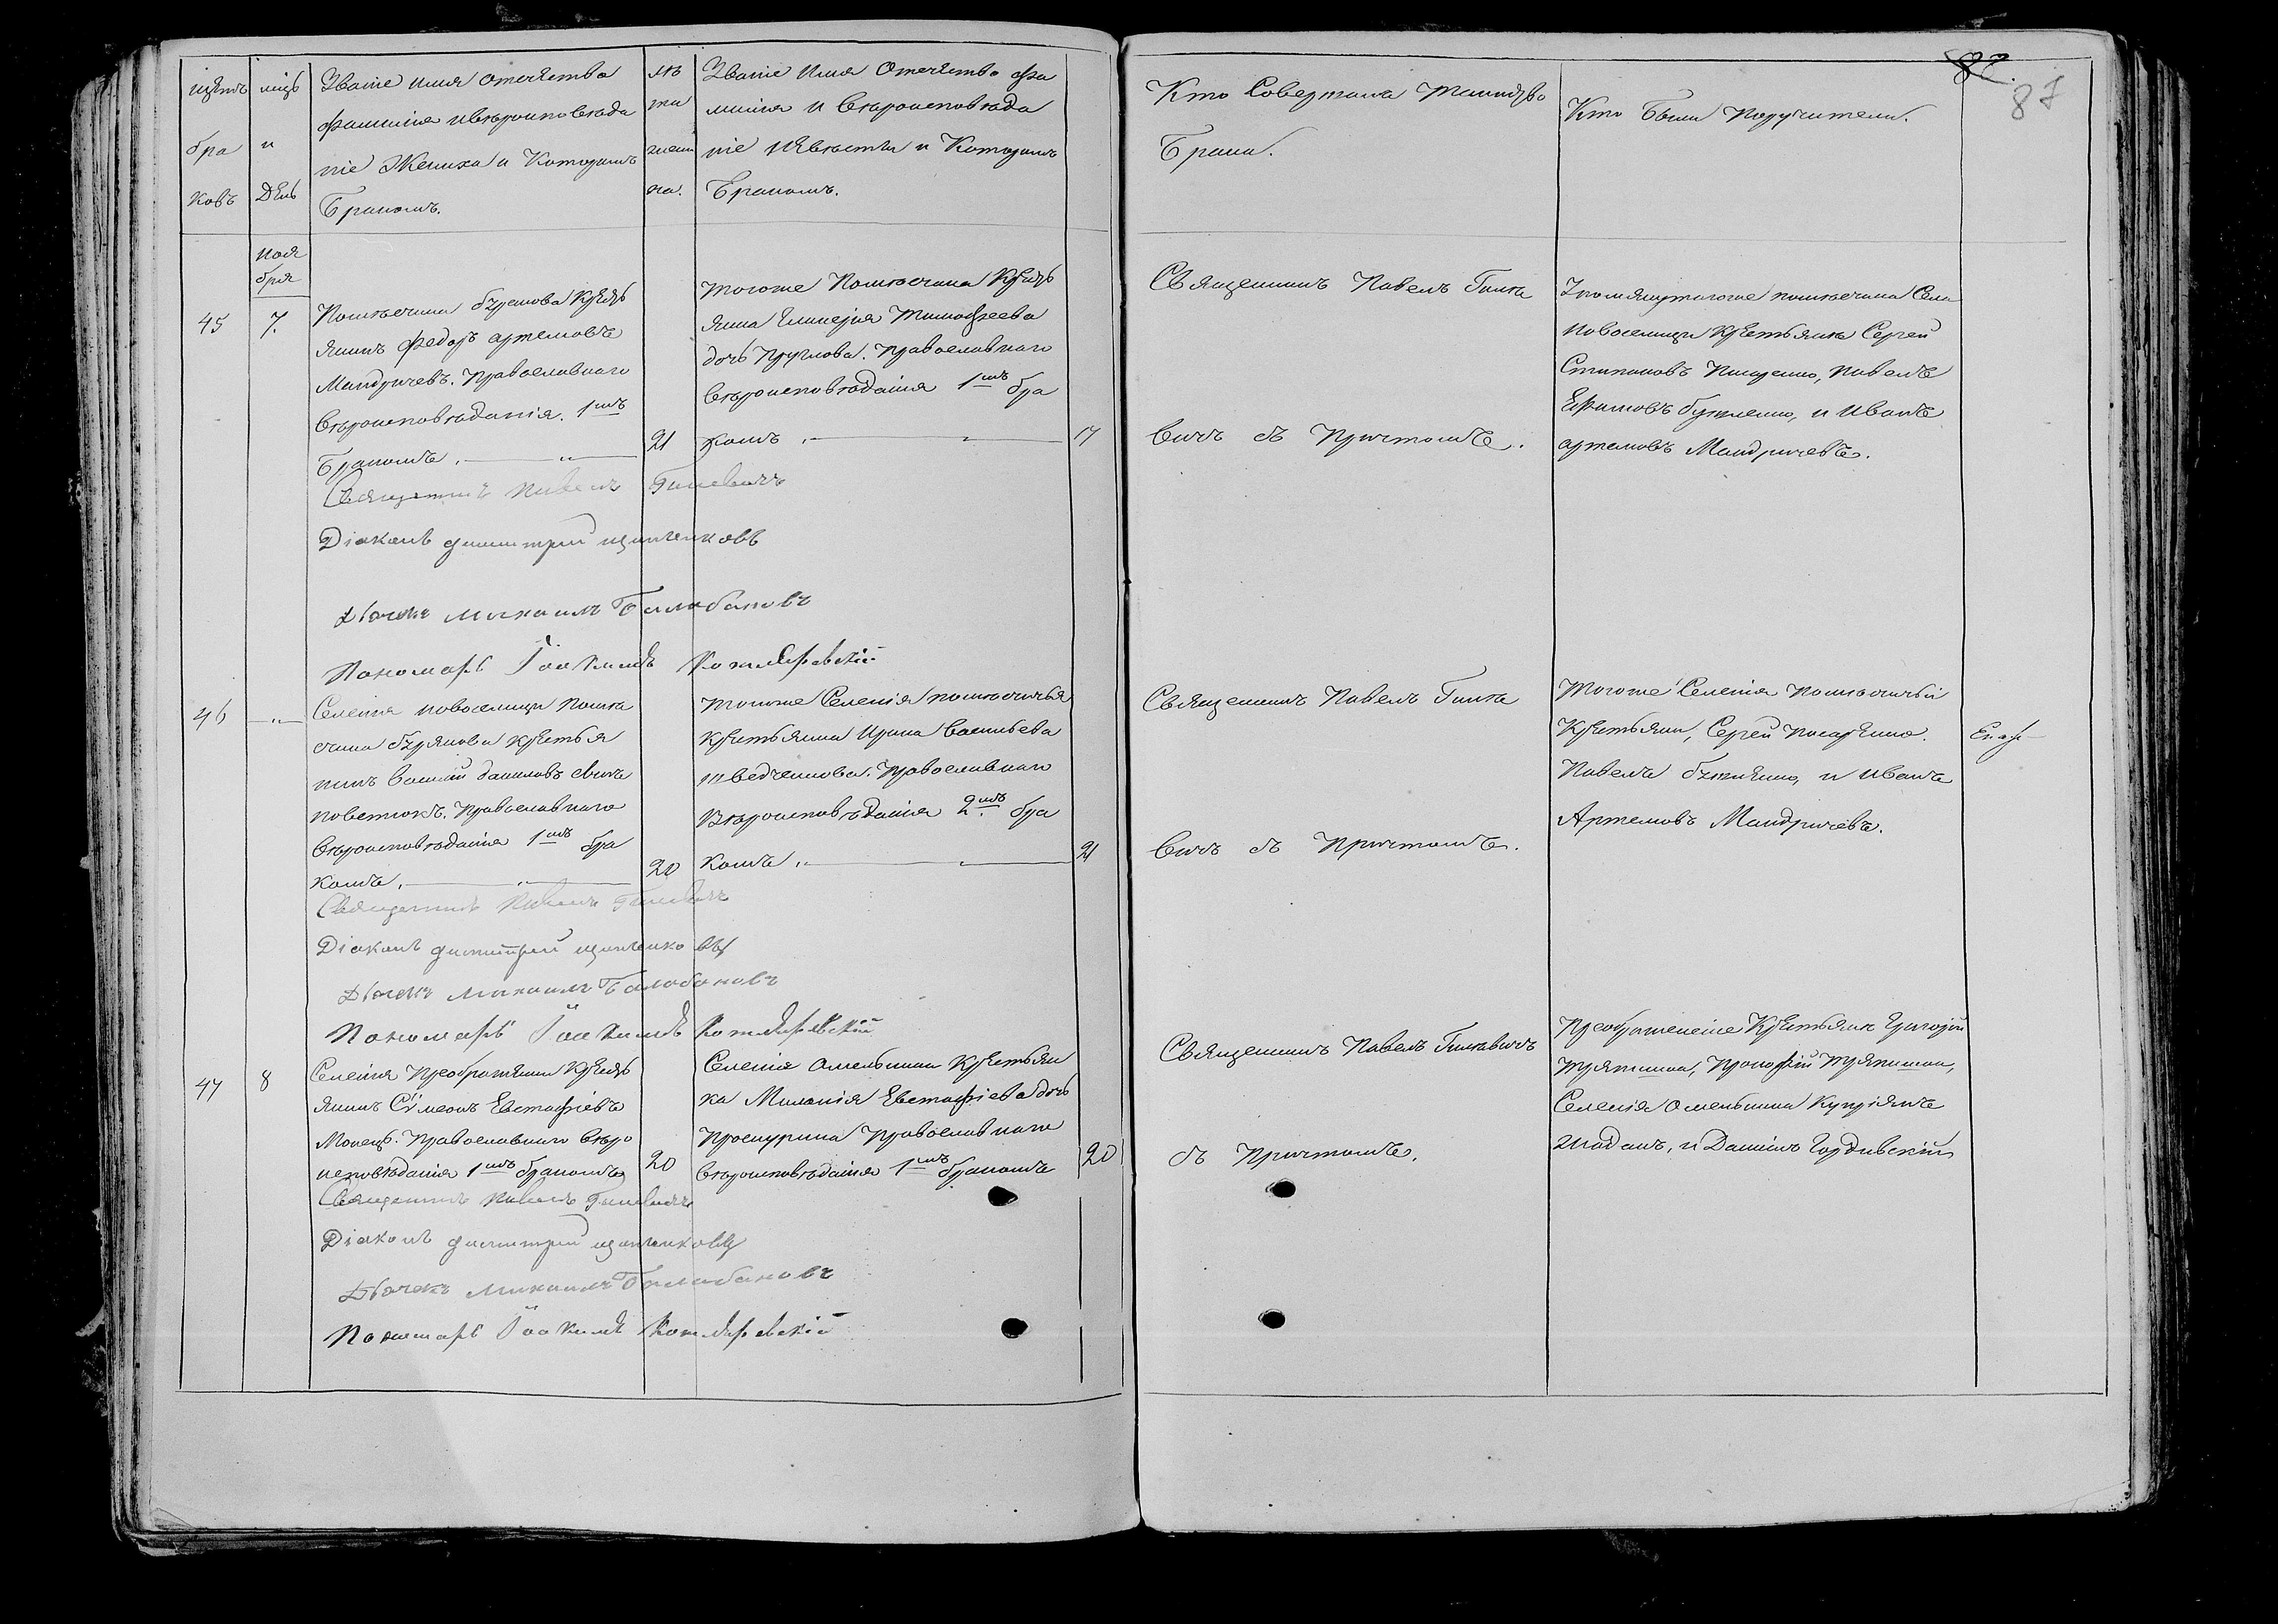 щетъ
бра
ковъ
мцъ
и
День
Званіе имя отечетво
фамилія ивѣроисповѣда
ніе Жениха и Которымъ
Бракомъ.
лѣ
та
жени
ха.
Званіе Имя Отечетво фа
милія и вѣроисповѣда
ніе невѣсты и Которымъ
Бракомъ.
Кто Совершалъ Таинство
Брака.
Кто Были Поручители.
87
ноя
бря
45
7.
Помѣщика Кресть
янинъ Федоръ артемовъ
Мандричевъ. Православнаго
вѣроисповѣданія. 1мъ
Бракомъ
21
тогоже Помѣщика Кресть
янка Гликерія Тимофеева
дочь Круглова. Православнаго
вѣроисповѣданія 1мъ бра
комъ
17
Священникъ Павелъ Гинке
вичъ съ Причтомъ.
помѣщика Села
новоселицы Крестьяна Сергей
Степановъ Писаренко, павелъ
и Иванъ
артемовъ Мандричевъ.
Священникъ Павелъ Гинкевичъ
Діаконъ димитрій щипенковъ
Дьячекъ Михаилъ Балабановъ
Пономарь Іоакимъ Котляревскій
46
Селенія новоселицы Помѣ
щика крестья
нинъ василій даниловъ
Православнаго
вѣроисповѣданія 1мъ бра
комъ
20
тогоже Селенія помѣщичья
крестьянка Ирина васильева
шведченкова. Православнаго
Вѣроисповѣданія 2мъ. бра
комъ
21
Священникъ Павелъ Гинке
вичъ съ Причтомъ.
тогоже Селенія помѣщичьи
Крестьяни, Сергей Писаренко.
Павелъ и Иванъ
Артемовъ Мандричевъ.
Священникъ Павелъ Гинкевичъ
Діаконъ димитрій щипенковъ
Дьячекъ Михаилъ Балабановъ
Пономарь Іоакимъ Котляревскій
47
8
Селенія Преображенки Кресть
янинъ Сѵмеонъ Евстафіевъ
Православнаго вѣро
исповѣданія 1мъ бракомъ
20
Селенія Омельника Крестьян
ка Меланія Евстафіева дочь
Проскурина Православнаго
вѣроисповѣданія 1мъ бракомъ
20
Священникъ Павелъ Гинкевичъ
съ Причтомъ.
Преображенскіе Крестьяне Григорій
Прокофій
Селенія Омельника Купріянъ
и Даніилъ Гордиевскій
Священникъ Павелъ Гинкевичъ
Діаконъ димитрій щипенковъ
Дьячекъ Михаилъ Балабановъ
Пономарь Іоакимъ Котляревскій